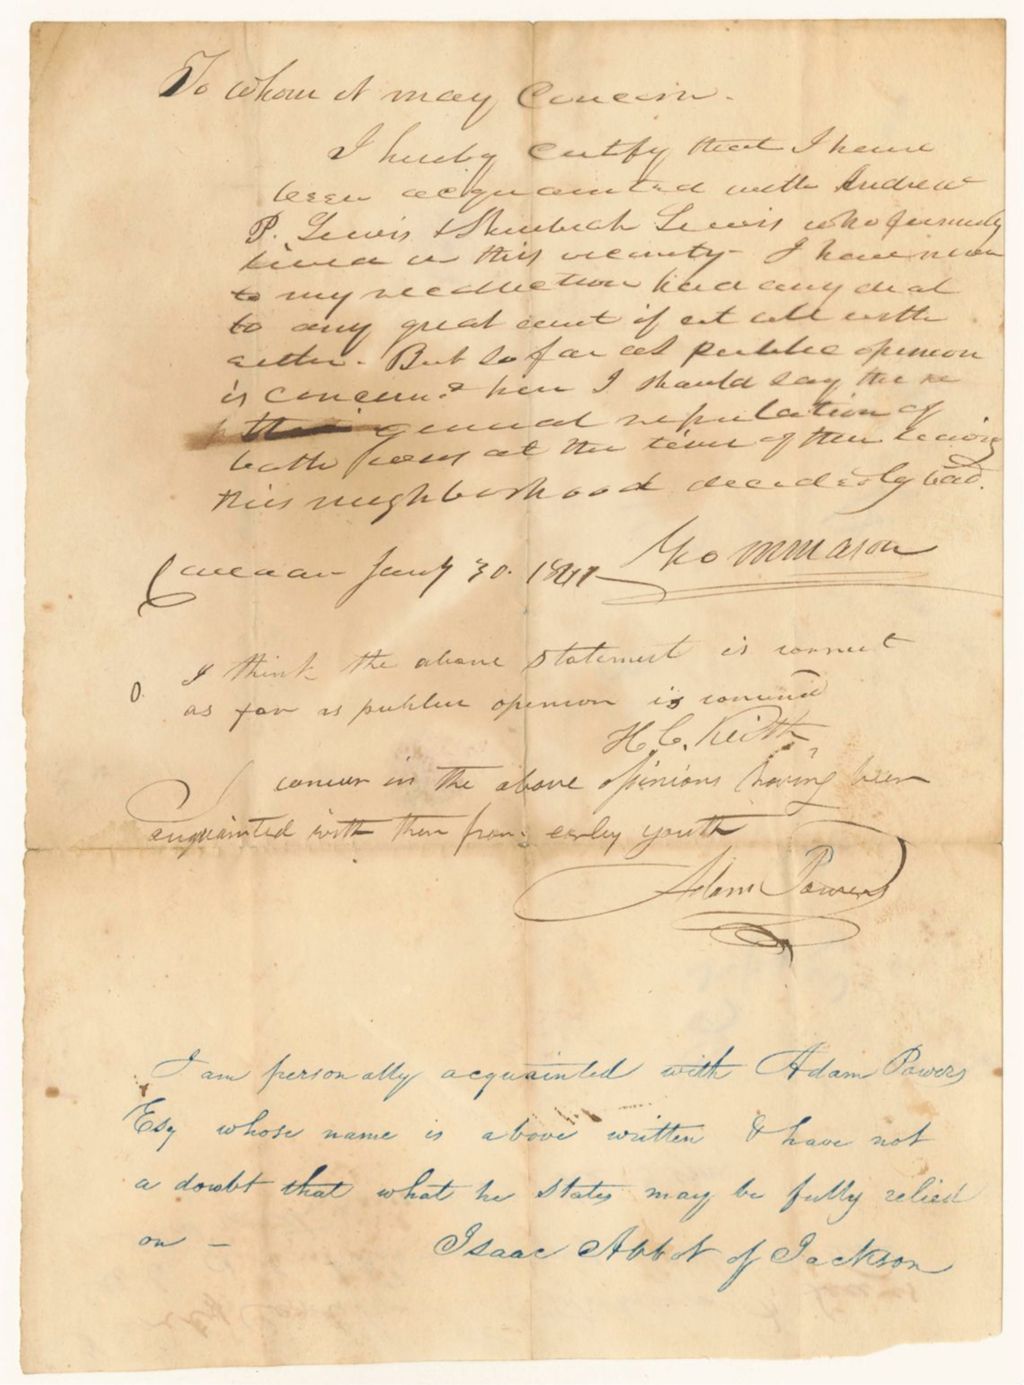 To whom it may Concern.
I hereby certify that I have
been acquainted with Andrew
P. Lewis & Shubeah Lewis who formerly
lived in this vicinity - I have never
to my recollection had any deal
to any great amt if at all with
either. But so far as public opinion
is concernd here I should say the re
general reputation of
both was at the time of their leaving
this neighborhood decidedly bad.
Canaan Jany 30. 1841 Geo M Mason
I think the above statement is correct
as far as public opinion is concernd
H. C. Keith
I concur in the above opinions having been
acquainted with them from earley youth
Adam Powers
I am personally acquainted with Adam Powers
Esq whose name is above written & have not
a doubt that what he states may be fully relied
on - Isaac Abbot of Jackson